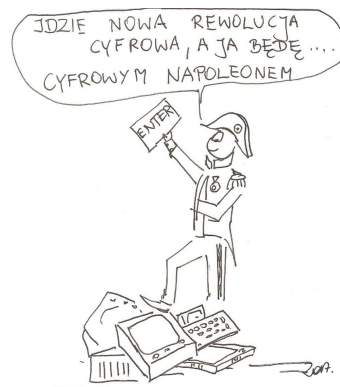 IDZIE NOWA REWOLUCJA
CYFROWA, A JA BĘDĘ....
CYFROWYM NAPOLEONEM
ENTER
2017.